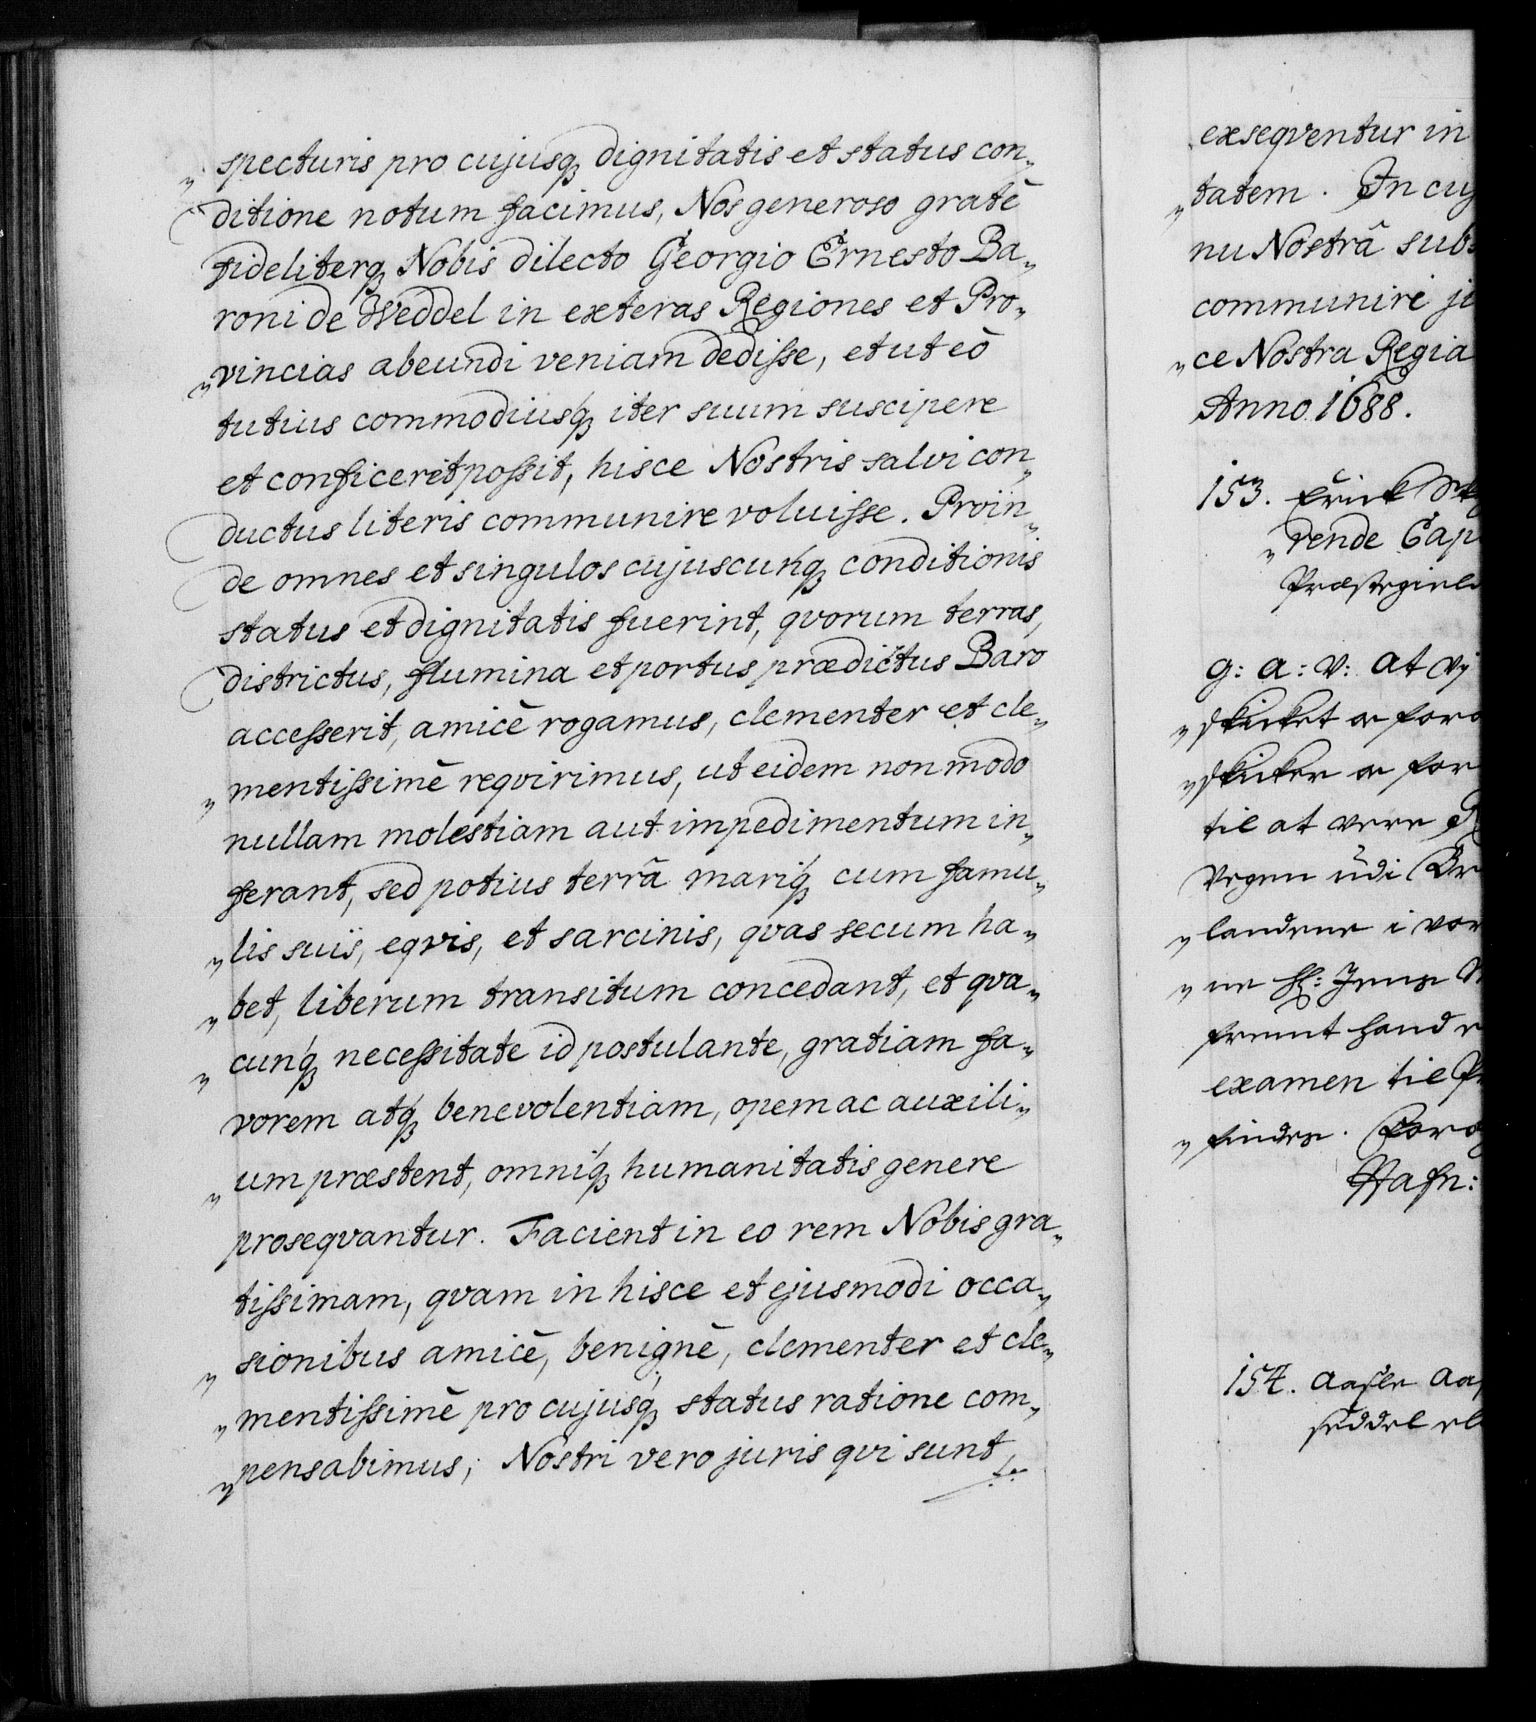 „specturis pro cujusq; dignitatis et status con„
ditione notum facimus, Nos generoso gratè
fideliterq; Nobis dilecto Georgio Ernesto Ba„
roni de Weddel in exteras Regiones et Pro„
„vincias abeundi veniam dedisse, et ut eò
tutius commodiusq; iter suum suscipere
et conficere possit, hisce Nostris salvi con„
ductus literis communire voluisse. Proin„
de omnes et singulos cujuscunq; conditionis
status et dignitatis fuerint, qvorum terras,
districtus, flumina et portus prædictus Baro
accesserit, amicè rogamus, clementer et cle„
„mentissimè reqvirimus, ut eidem non modo
nullam molestiam aut impedimentum in„
ferant, sed potius terrâ mariq; cum famu„
„lis suis, eqvis, et sarcinis, qvas secum ha„
„bet, liberum transitum concedant, et qva„
„cunq; necessitate id postulante, gratiam fa„
vorem atq; benevolentiam, opem ac auxili„
„um præstent, omniq; humanitatis genere
proseqvantur. Facient in eo rem Nobis gra„
tissimam, qvam in hisce et ejusmodi occa„
„sionibus amicè, benignè, clementer et cle„
„mentissimè pro cujusq; status ratione com„
„pensabimus; Nostri vero juris qvi sunt,
exseqventur in
„tatem. In cuj
nu Nostrâ subs
communiri ji
„ce Nostra Regia
Anno 1688.
153. Erick
„rende Cap
Præstegield
g: a: v: at Vj
„skicket oc foro
„skicker oc for
til at vere
Vegen udi
„landene i vor
„ne Hr: Jens
fremt hand
examen til
„findes. Forb
Hafn:
154. Aasle Aas
seddel